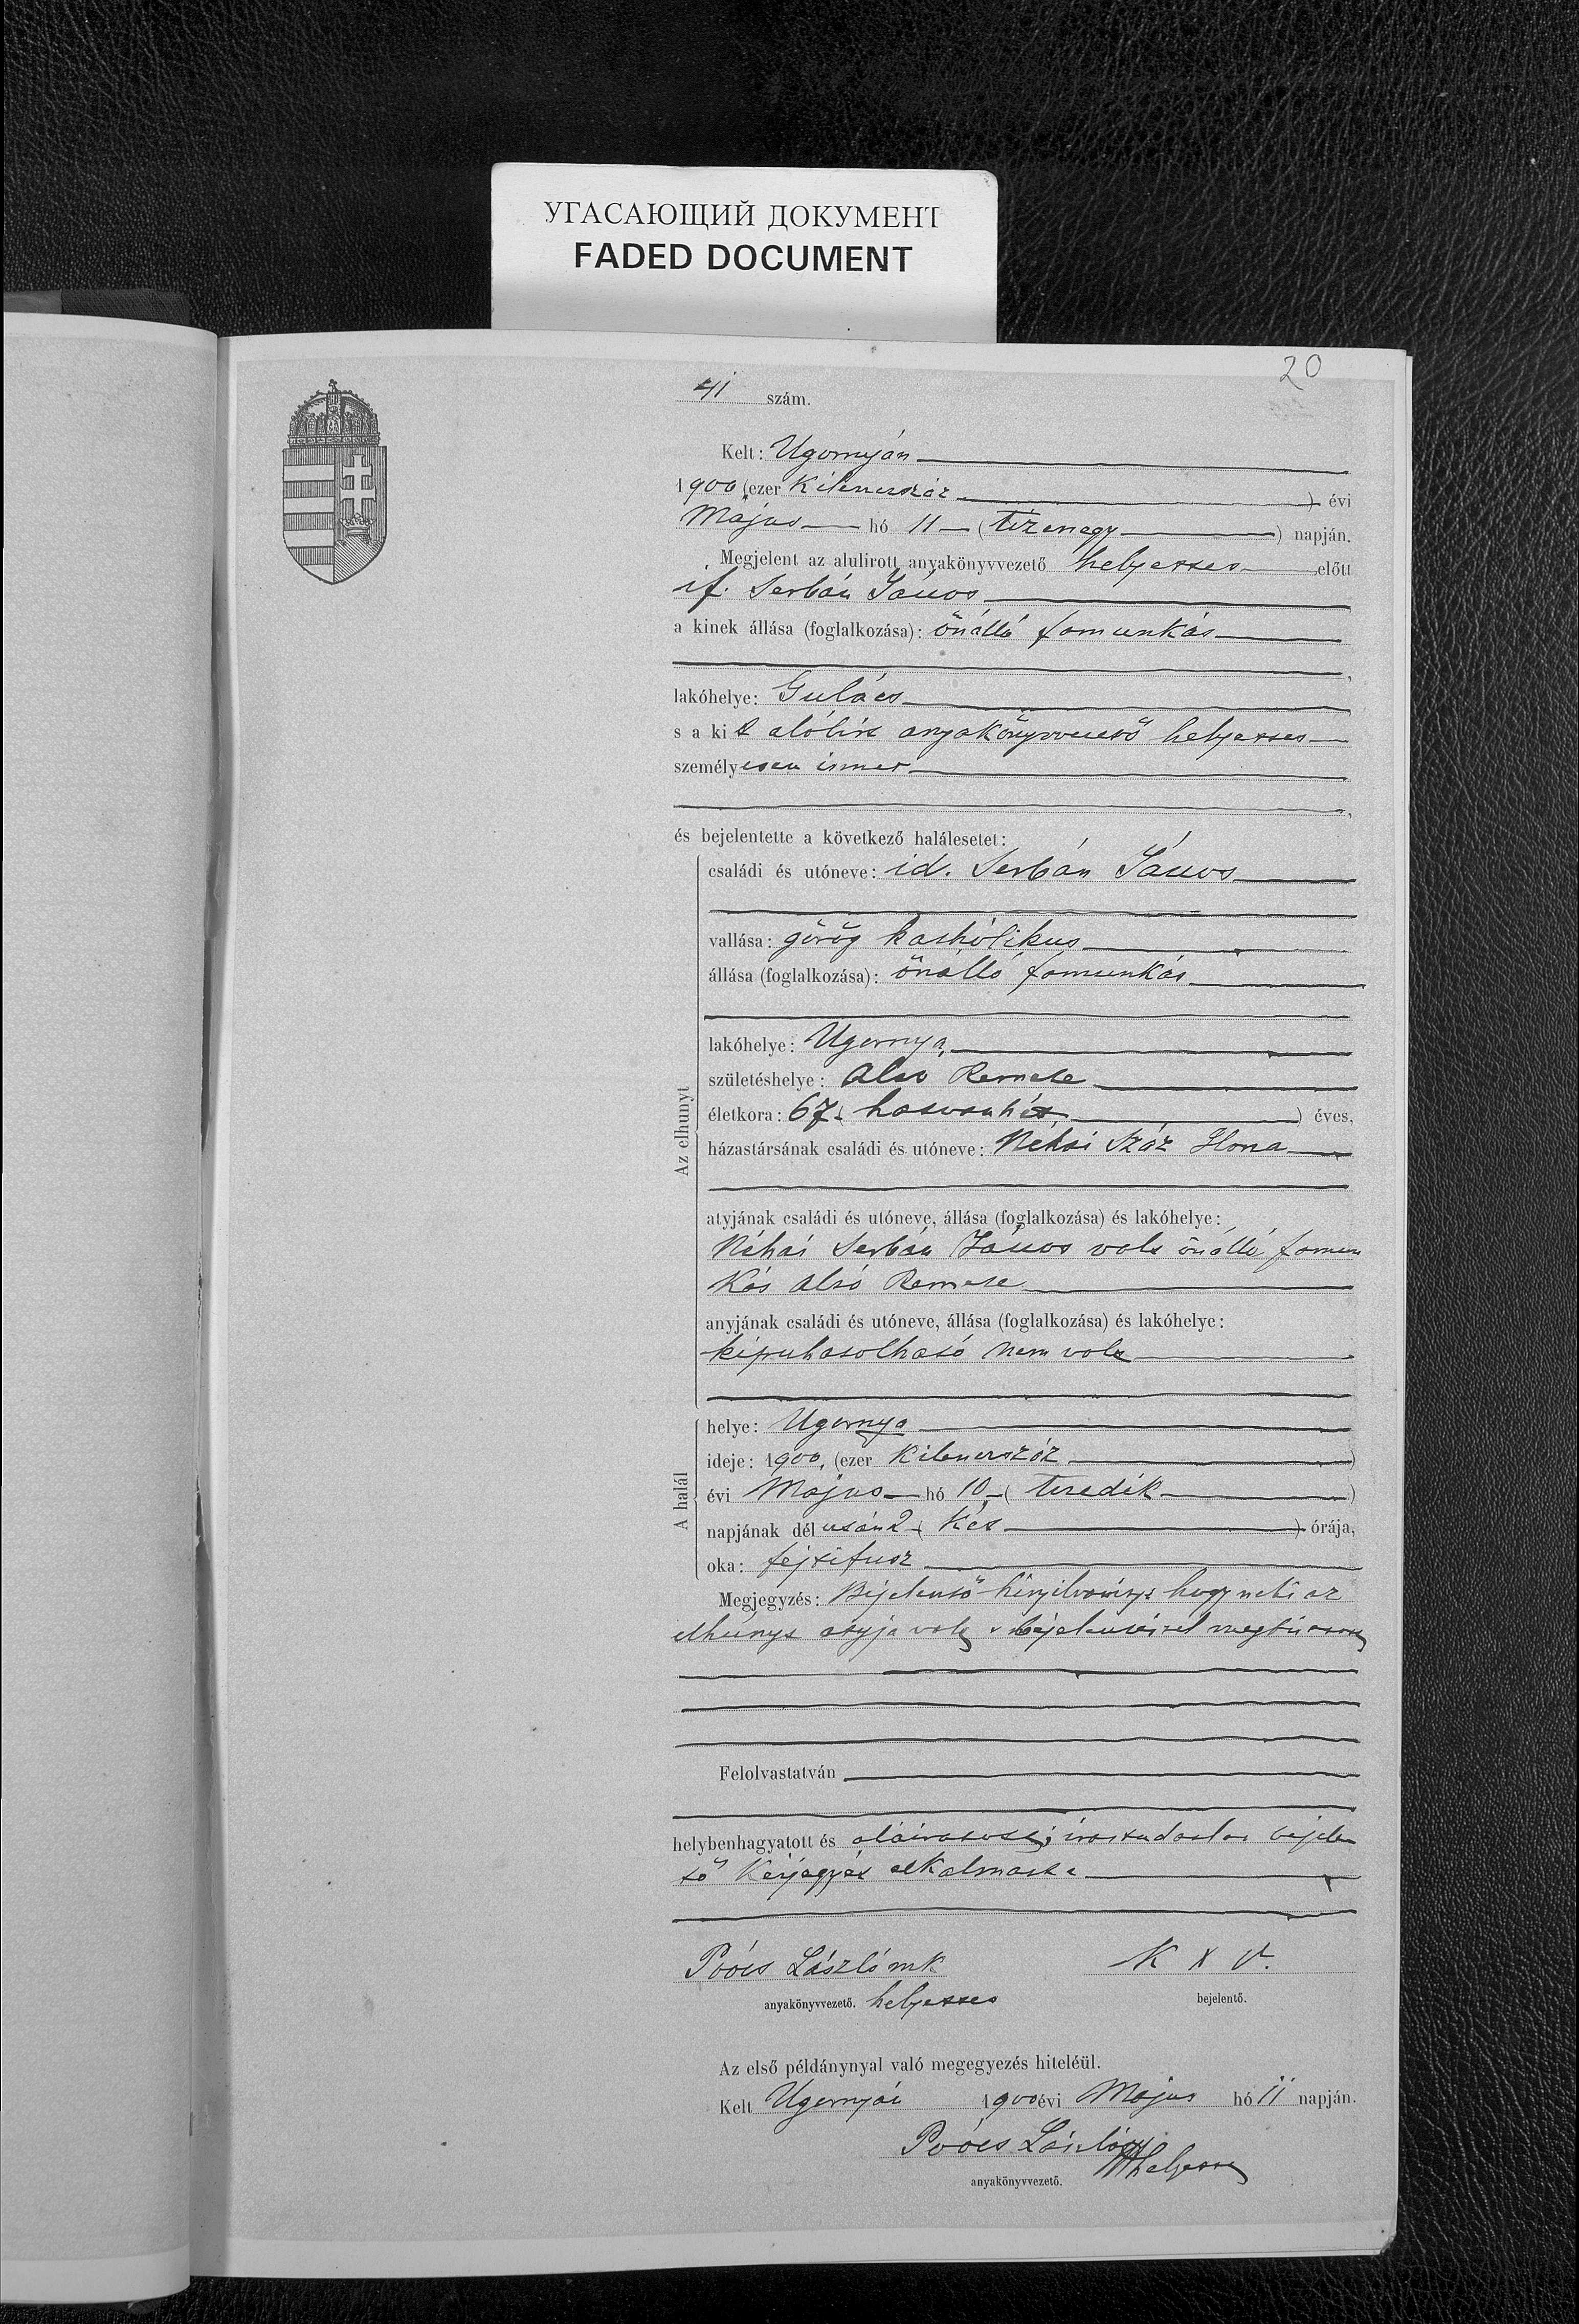 УГАСАЮЩИЙ ДОКУМЕНТ
FADED DOCUMENT
20
41 szám.
Kelt: Ugornyán
1900 (ezer kilencszáz) évi
Május hó 11 (tizenegy) napján.
Megjelent az alulirott anyakönyvvezető helyettes előtt
if. Serbán János
a kinek állása (foglalkozása): önálló fomunkás
lakóhelye: Gulács
s a kit alólirt anyakönyvvezető helyettes
személyesen ismer
és bejelentette a következő halálesetet:
Az elhunyt
családi és utóneve: id. Serbán János
vallása: görög katholikus
állása (foglalkozása): önálló fomunkás
lakóhelye: Ugornya,
születéshelye: Alsó Remete
életkora: 67 (hatvanhét) éves,
házastársának családi és utóneve: Néhai Száz Ilona
atyjának családi és utóneve, állása (foglalkozása) és lakóhelye:
Néhai Serbán János volt önálló fomun
kás Alsó Remete
anyjának családi és utóneve, állása (foglalkozása) és lakóhelye:
kipuhatolható nem volt
A halál
helye: Ugornya
ideje: 1900, (ezer kilencszáz)
évi Május hó 10 (tizedik)
napjának délután 2 (két) órája,
oka: fejtifusz
Megjegyzés: Bejelentő kinyilvánítja hogy neki az
elhúnyt atyja volt s bejelentésére megbízott
Felolvastatván
helybenhagyatott és aláiratott, irástudatlan bejelen
tő kézjegyét alkalmazta
Póócs László mk K X V.
anyakönyvvezető. helyettes bejelentő.
Az első példánynyal való megegyezés hiteléül.
Kelt Ugornyán 1900 évi Május hó 11 napján.
Póócs László
helyettes
anyakönyvvezető.